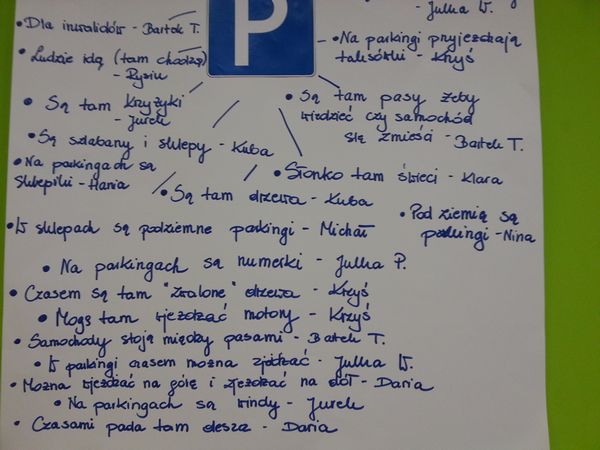 - Julka W.
• Dla inwalidów - Bartek T.
P
• Na parkingi przyjeżdżają
taksówki - Krzyś
• Ludzie idą (tam chodzą)
- Rysiu
• Są tam krzyżyki
- Jurek
• Są tam pasy żeby
wiedzieć czy samochód
się zmieści - Bartek T.
• Są szlabany i sklepy - Kuba
• Na parkingach są
sklepiki - Hania
• Słonko tam świeci - Klara
• Są tam drzewa - Kuba
• Pod ziemią są
parkingi - Nina
• W sklepach są podziemne parkingi - Michał
• Na parkingach są numerki - Julka P.
• Czasem są tam "zwalone" drzewa - Krzyś
• Mogą tam wjeżdżać motory - Krzyś
• Samochody stoją między pasami - Bartek T.
• W parkingi czasem można zjeżdżać - Julka W.
• Można wjeżdżać na górę i zjeżdżać na dół - Daria
• Na parkingach są windy - Jurek
• Czasami pada tam deszcz - Daria